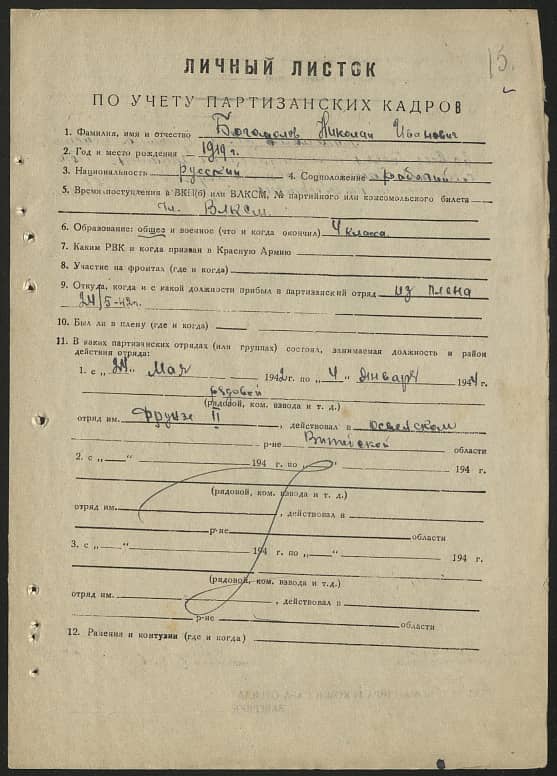 15.
ЛИЧНЫЙ ЛИСТОК
ПО УЧЕТУ ПАРТИЗАНСКИХ КАДРОВ
1. Фамилия, имя и отчество Богомолов Николай Иванович
2. Год и место рождения 1919 г.
3. Национальность русский 4. Соцположение рабочий
5. Время поступления в ВКП(б) или ВЛКСМ, № партийного или комсомольского билета
Чл. ВЛКСМ
6. Образование: общее и военное (что и когда окончил) 4 класса
7. Каким РВК и когда призван в Красную Армию
8. Участие на фронтах (где и когда)
9. Откуда, когда и с какой должности прибыл в партизанский отряд из плена
24/5-42 г.
10. Был ли в плену (где и когда)
11. В каких партизанских отрядах (или группах) состоял, занимаемая должность и район
действия отряда:
1. с „24" мая 1942 г. по „4" января 1944 г.
рядовой
(рядовой, ком. взвода и т. д.)
отряд им. Фрунзе II, действовал в Освейском
р-не Витебской области
2. с „ " 194 г. по „ " 194 г.
(рядовой, ком. взвода и т. д.)
отряд им. , действовал в
р-не области
3. с „ " 194 г. по „ " 194 г.
(рядовой, ком. взвода и т.д.)
отряд им. , действовал в
р-не области
12. Ранения и контузии (где и когда)